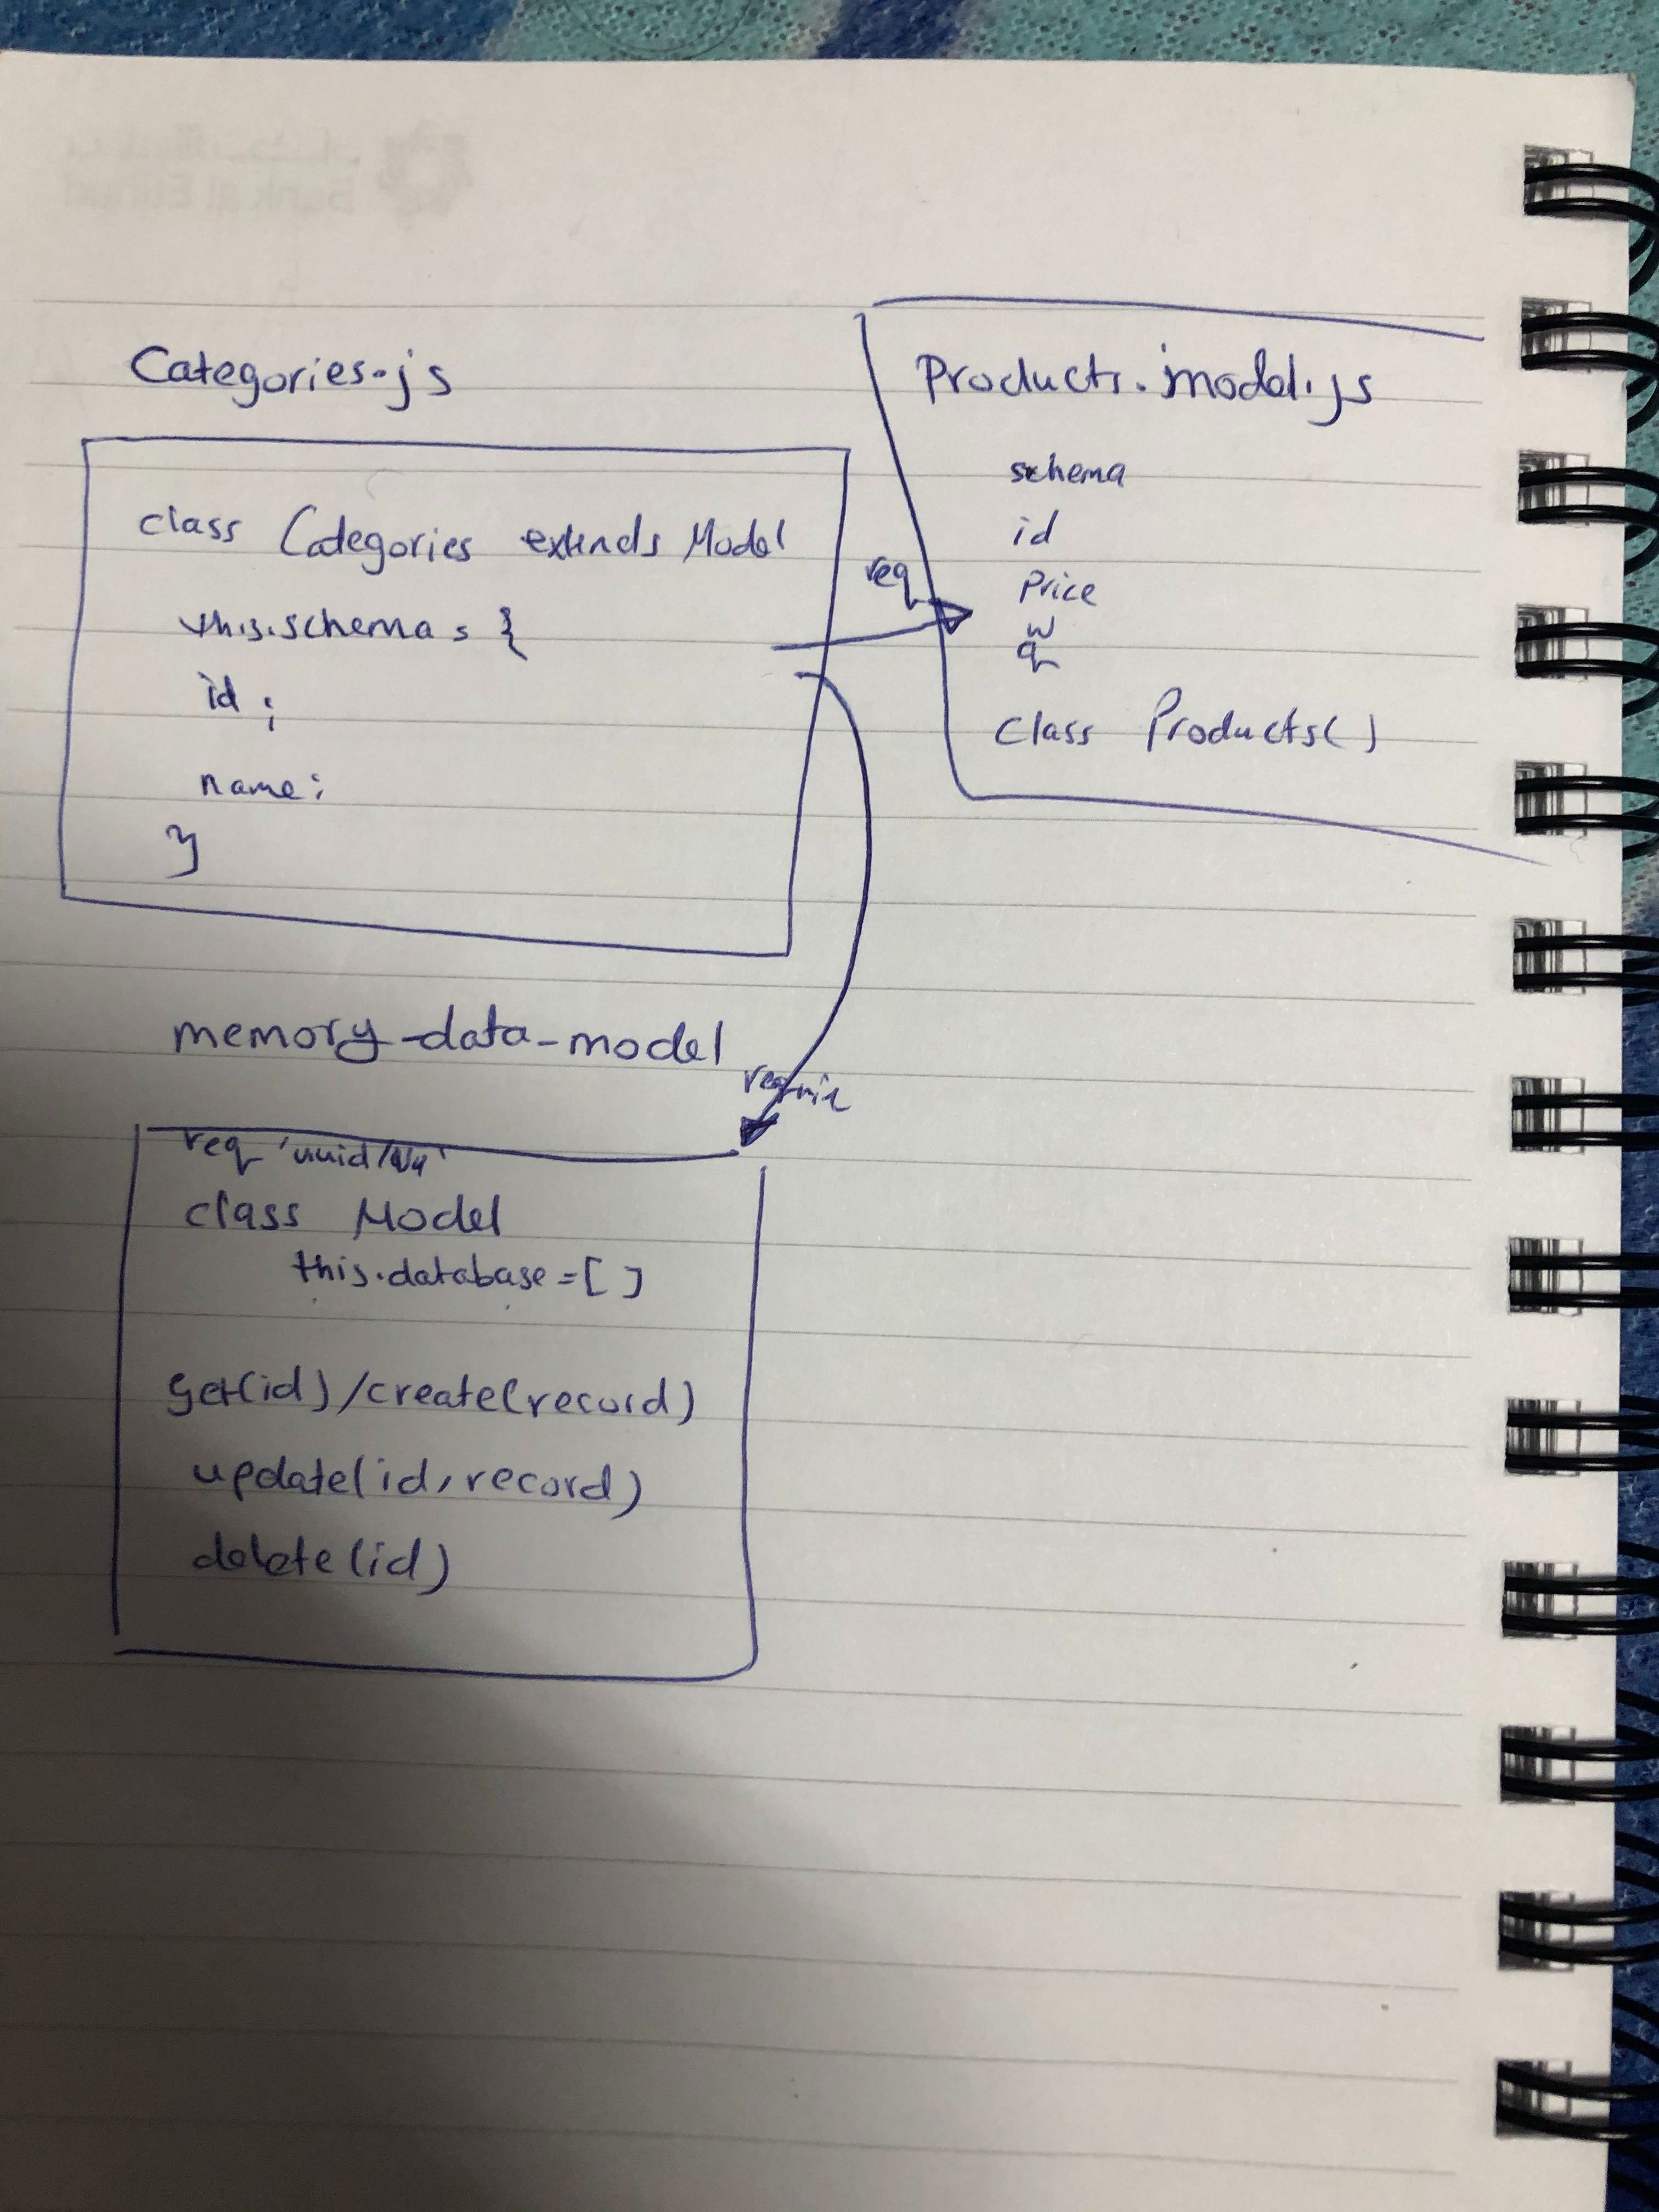 Categories.js
class Categories extends Model
this.schema = {
id :
name :
}
Products.model.js
schema
id
Price
w
q
class Products()
req
memory-data-model
require
req 'uuid/v4'
class Model
this.database = [ ]
get(id) / create(record)
update(id, record)
delete(id)